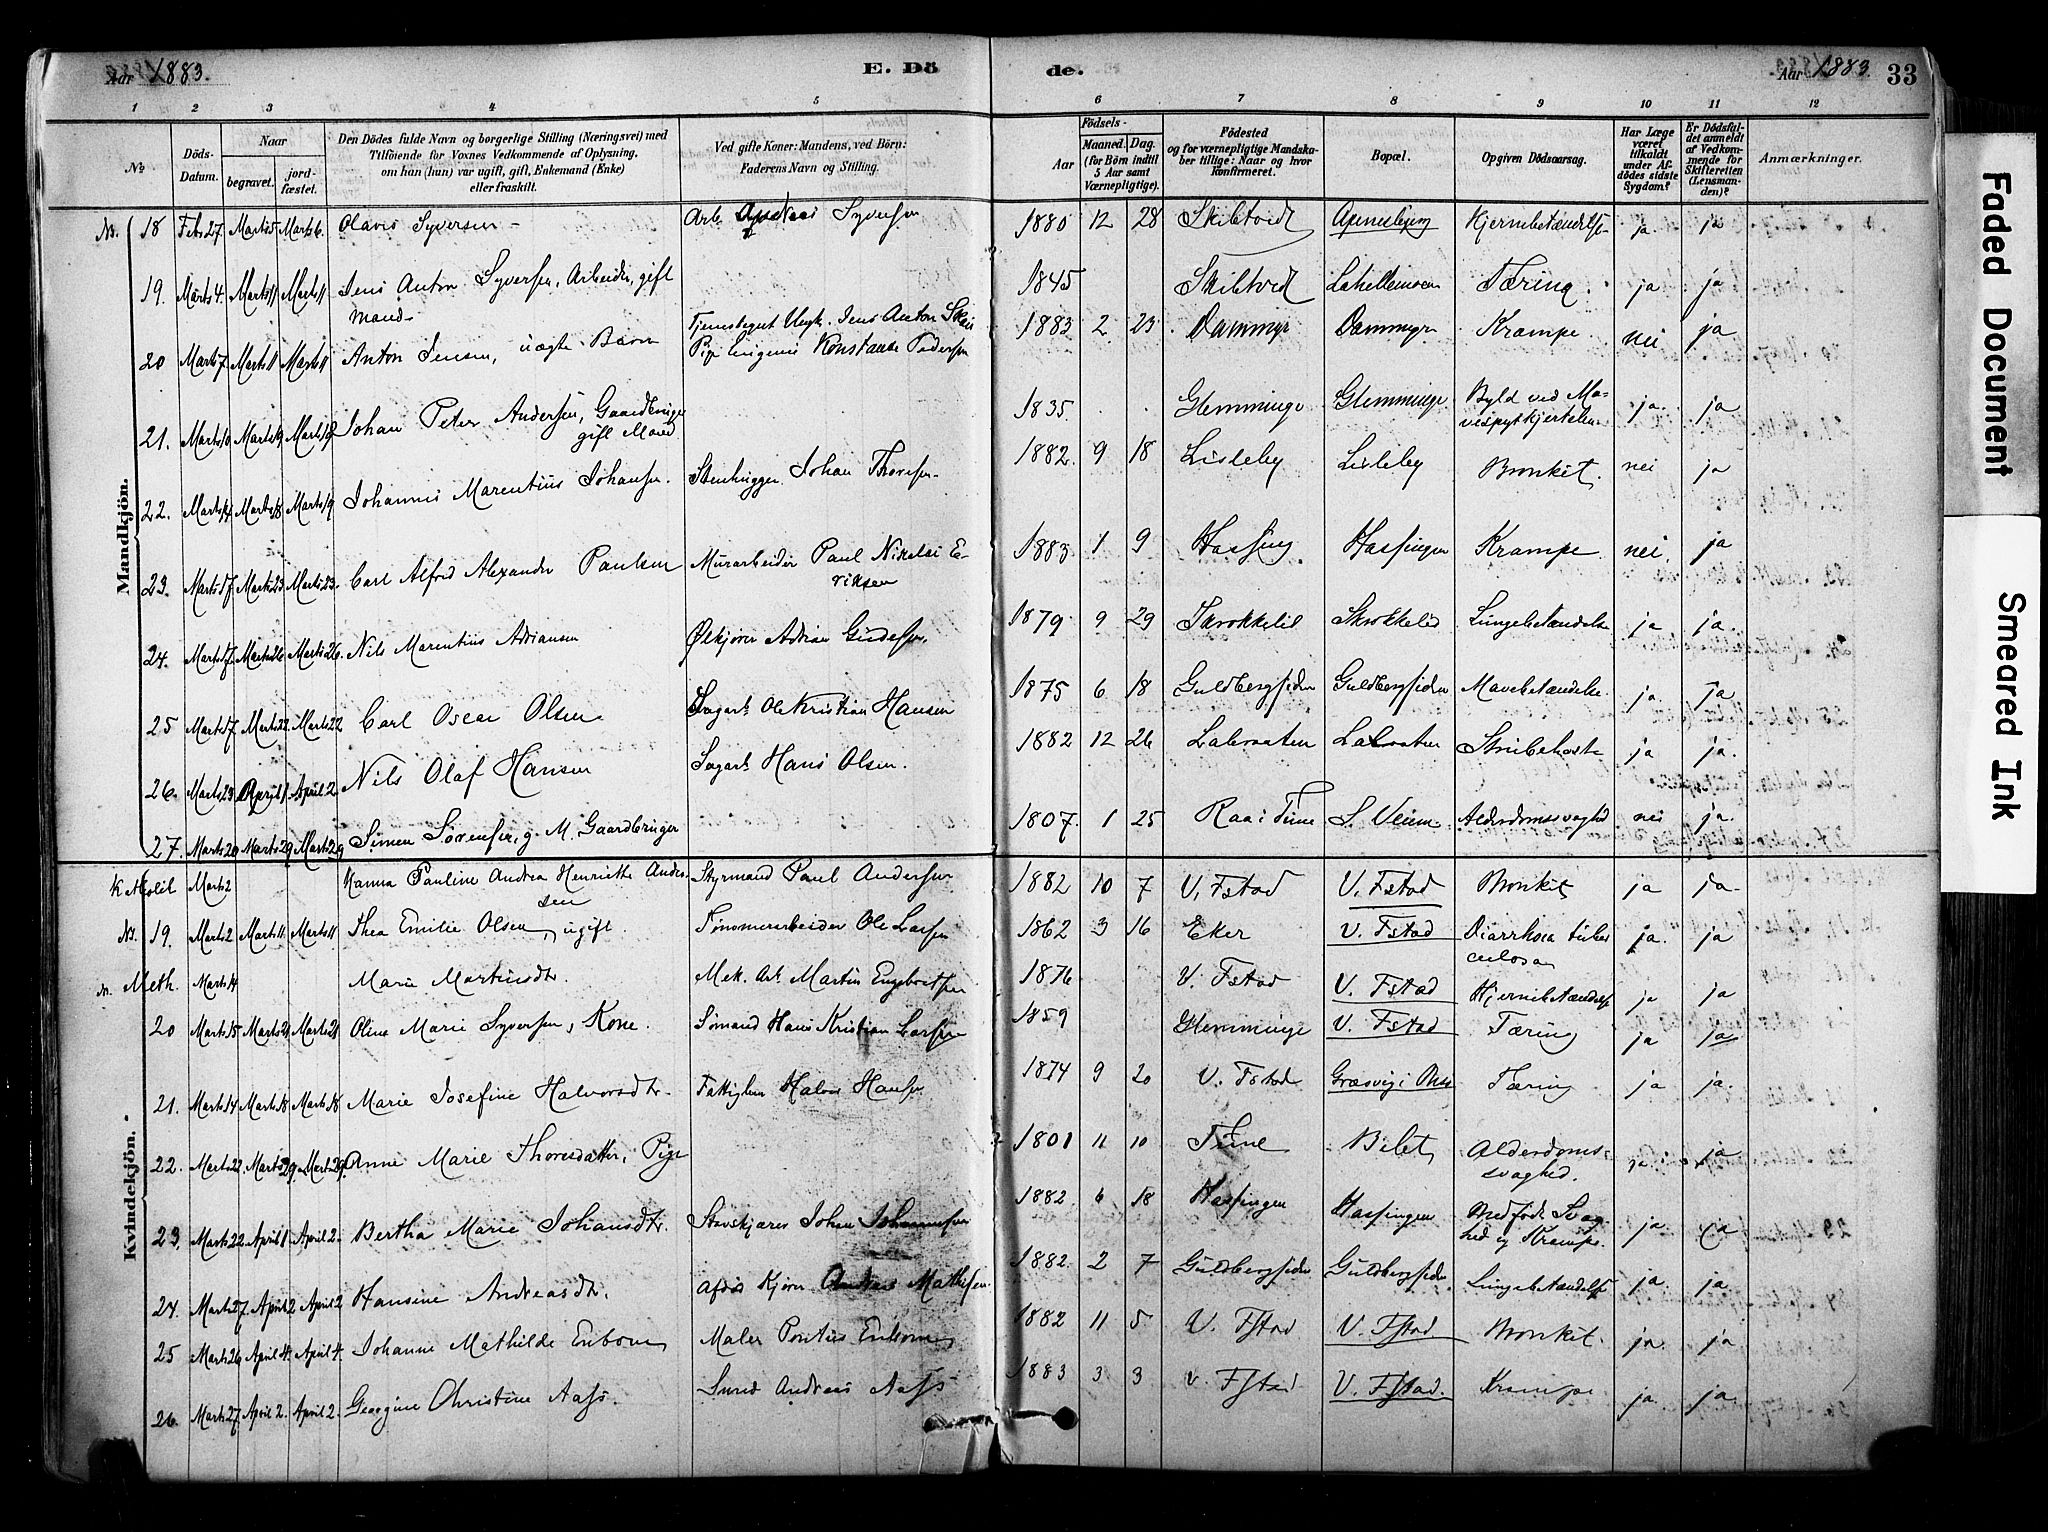 Aar 1883. E. Dö de. Aar 1883. 33
1 2 3 4 5 6 7 8 9 10 11 12
№ Döds-Datum. Naar begravet. jord-fæstet. Den Dödes fulde Navn og borgerlige Stilling (Næringsvei) med Tilföiende for Voxnes Vedkommende af Oplysning, om han (hun) var ugift, gift, Enkemand (Enke) eller fraskilt. Ved gifte Koner: Mandens, ved Börn: Faderens Navn og Stilling. Födsels- Aar Maaned. Dag. (for Börn indtil 5 Aar samt Værnepligtige). Födested og for værnepligtige Mandska-ber tillige: Naar og hvor konfirmeret. Bopæl. Opgiven Dödsaarsag. Har Læge været tilkaldt under Af-dödes sidste Sygdom? Er Dödsfal-det anmeldt af Vedkom-mende for Skifteretten (Lensman-den)? Anmærkninger.
Mandkjön.
Nr. 18 Feb. 27. Marts 5 Marts 6. Olavis Syversen - Arb. Andreas Syversen 1880 12 28 Skibtvedt Hjernebetændelse ja ja
19. Marts 4. Marts 11 Marts 11 Jens Anton Syversen, Arbeider, gift Mand. 1845 Skibtvedt Lahellemoen Tæring. ja ja
20 Marts 7 Marts 11 Marts 11 Anton Jensen, uægte Barn Jens Anton Pige Eugenie Konstanse Pedersen 1883 2 23 Dammyr Dammyr Krampe nei ja
21. Marts 10 Marts 19 Marts 19 Johan Peter Andersen, Gaardbruger gift Mand 1835 Glemminge Glemminge Byld ved Mavespytkjertelen ja ja
22. Marts 14 Marts 18 Marts 19 Johannes Marentius Johansen. Stenhugger Johan Thoresen 1882. 9 18 Lisleby Lisleby Bronkit. nei ja
23. Marts 17 Marts 23 Marts 23. Carl Alfred Alexander Paulsen Murarbeider Paul Nikolai Eriksen 1883 1 9 Hassing Hassingen Krampe nei. ja
24. Marts 17. Marts 26 Marts 26. Nils Marentius Adriansen Ølkjører Adrian Gudesen. 1879 9 29 Skrokkelid Skrokkelid Lungebetændelse ja ja.
25 Marts 17. Marts 22 Marts 22 Carl Oscar Olsen Sagarb. Ole Kristian Hansen 1875 6 18 Guldbergsiden Guldbergsiden Mavebetændelse. ja ja
26. Marts 23. April 1 April 2. Nils Olaf Hansen Sagarb. Hans Olsen. 1882 12 26 Labraaten Labraaten Strubehoste ja ja.
27. Marts 20 Marts 29 Marts 29 Simen Sørensen, g. M. Gaardbruger 1807. 1 25 Raa i Tune Alderdomssvaghed nei ja.
Kvindekjön.
Katholik Marts 2 Hanna Pauline Andrea Henriette Andersen Styrmand Paul Andersen 1882 10 7 V. Fstad V. Fstad Bronkit ja ja.
Nr. 19. Marts 2 Marts 11. Marts 11 Thea Emilie Olsen, ugift. Tømmerarbeider Ole Larsen 1862 3 16 Eker V. Fstad Diarrhoea tuberculosa ja. ja
Meth. Marts 14 Marie Martinsdtr. Mek. Arb. Martin Engebretsen 1876 V. Fstad V. Fstad Hjernebetændelse ja ja
20 Marts 15 Marts 21 Marts 21 Oline Marie Syversen, Kone. Sømand Hans Kristian Larsen 1859 Glemminge V. Fstad Tæring ja ja
21. Marts 14 Marts 18 Marts 18 Marie Josefine Halvorsdtr. Fattiglem Halvor Hansen 1874 9 20 V. Fstad Græsvig i Onsø Tæring ja ja.
22. Marts 22. Marts 29. Marts 29. Anne Marie Thoresdatter, Pige 1801 11 10 Tune Bilet Alderdomssvaghed. ja ja
23. Marts 22 April 1 April 2. Bertha Marie Johansdtr. Johan Johannesen 1882. 6 18 Hassingen Hassingen Medfødt Svaghed og Krampe. ja ja
24. Marts 27 April 2 April 2 Hansine Andreasdtr. Andreas Mathisen 1882. 2 7 Guldbergsiden Guldbergsiden Lungebetændelse ja. ja
25 Marts 26 April 4. April 4. Johanne Mathilde Enbom Maler Pontus Enbom 1882 11 5 V. Fstad V. Fstad Bronkit. ja. ja
26. Marts 27. April 2. April 2. Georgine Christine Aass. Smed Andreas Aass 1883 3 3 V. Fstad V. Fstad. Krampe ja. ja.
Faded Document
Smeared Ink